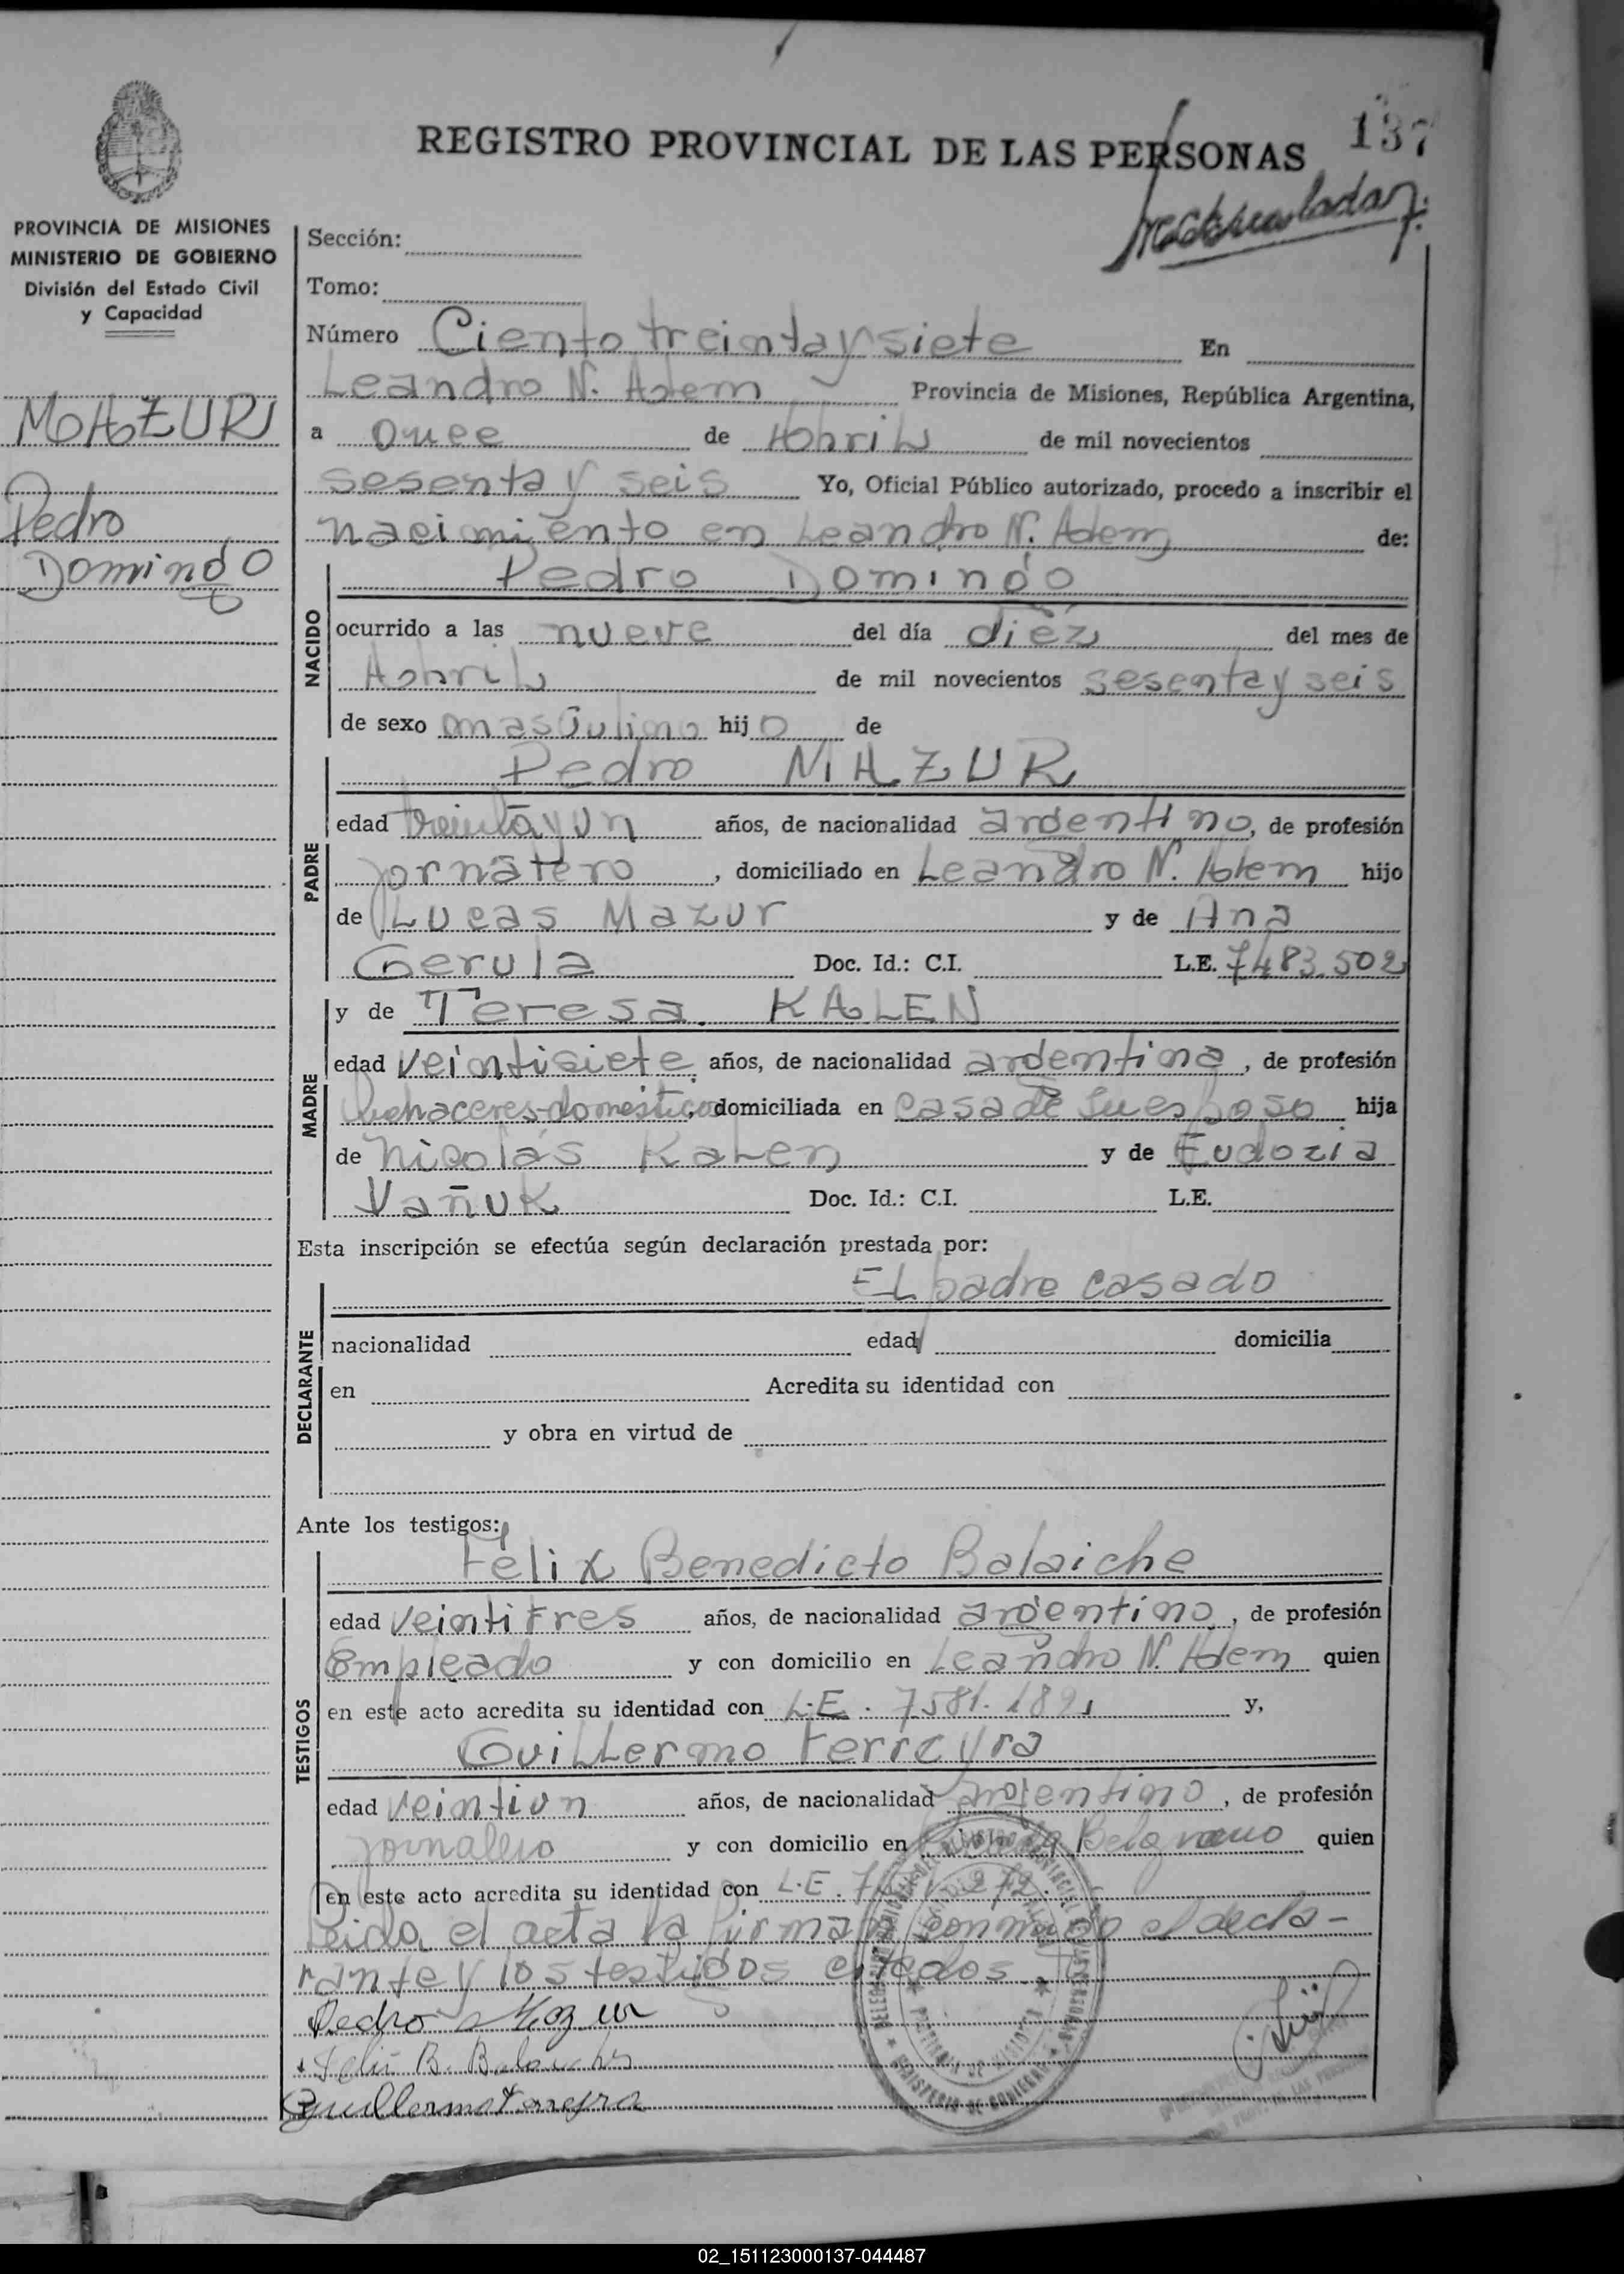 137
REGISTRO PROVINCIAL DE LAS PERSONAS
PROVINCIA DE MISIONES
MINISTERIO DE GOBIERNO
División del Estado Civil
y Capacidad
MAZUR
Pedro
Domingo
Sección:
Tomo:
Número Ciento treinta y siete En
Leandro N. Alem Provincia de Misiones, República Argentina,
a Once de Abril de mil novecientos
sesenta y seis Yo, Oficial Público autorizado, procedo a inscribir el
nacimiento en Leandro N. Alem de:
NACIDO
Pedro Domingo
ocurrido a las nueve del día diez del mes de
Abril de mil novecientos sesenta y seis
de sexo masculino hijo de
PADRE
Pedro MAZUR
edad treinta y un años, de nacionalidad argentino, de profesión
jornalero, domiciliado en Leandro N. Alem hijo
de Lucas Mazur y de Ana
Gerula Doc. Id.: C.I. L.E. 7483.502
MADRE
y de Teresa KALEN
edad veintisiete, años, de nacionalidad argentina, de profesión
Quehaceres domésticos, domiciliada en casa de su esposo hija
de Nicolás Kalen y de Eudozia
Vañuk Doc. Id.: C.I. L.E.
Esta inscripción se efectúa según declaración prestada por:
DECLARANTE
El padre casado
nacionalidad edad domicilia
en Acredita su identidad con
y obra en virtud de
Ante los testigos:
TESTIGOS
Félix Benedicto Balaiche
edad veintitres años, de nacionalidad argentino, de profesión
Empleado y con domicilio en Leandro N. Alem quien
en este acto acredita su identidad con L.E. 7581.189 y,
Guillermo Ferreyra
edad veintiun años, de nacionalidad argentino, de profesión
jornalero y con domicilio en Belgrano quien
en este acto acredita su identidad con L.E.
Leida el acta la firman conmigo el decla-
rante y los testigos citados.
Pedro Mazur
Felix B. Balaiche
Guillermo Ferreyra
02_151123000137-044487